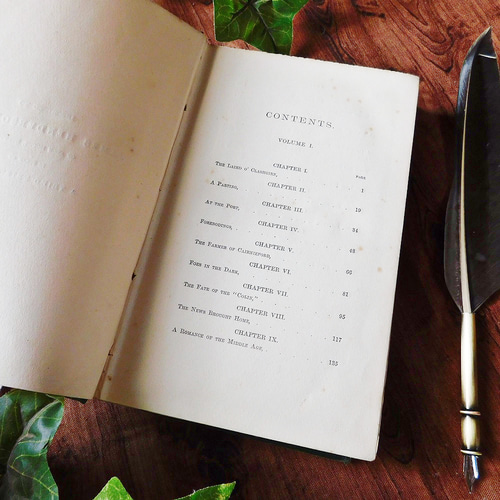 CONTENTS.
VOLUME I.
CHAPTER I.
PAGE
THE LAIRD O' 1
CHAPTER II.
A PARTING, 19
CHAPTER III.
AT THE PORT, 34
CHAPTER IV.
FOREBODINGS, 48
CHAPTER V.
THE FARMER OF 60
CHAPTER VI.
FOES IN THE DARK, 81
CHAPTER VII.
THE FATE OF THE "COLIN," 95
CHAPTER VIII.
THE NEWS BROUGHT HOME, 117
CHAPTER IX.
A ROMANCE OF THE MIDDLE AGE, 135